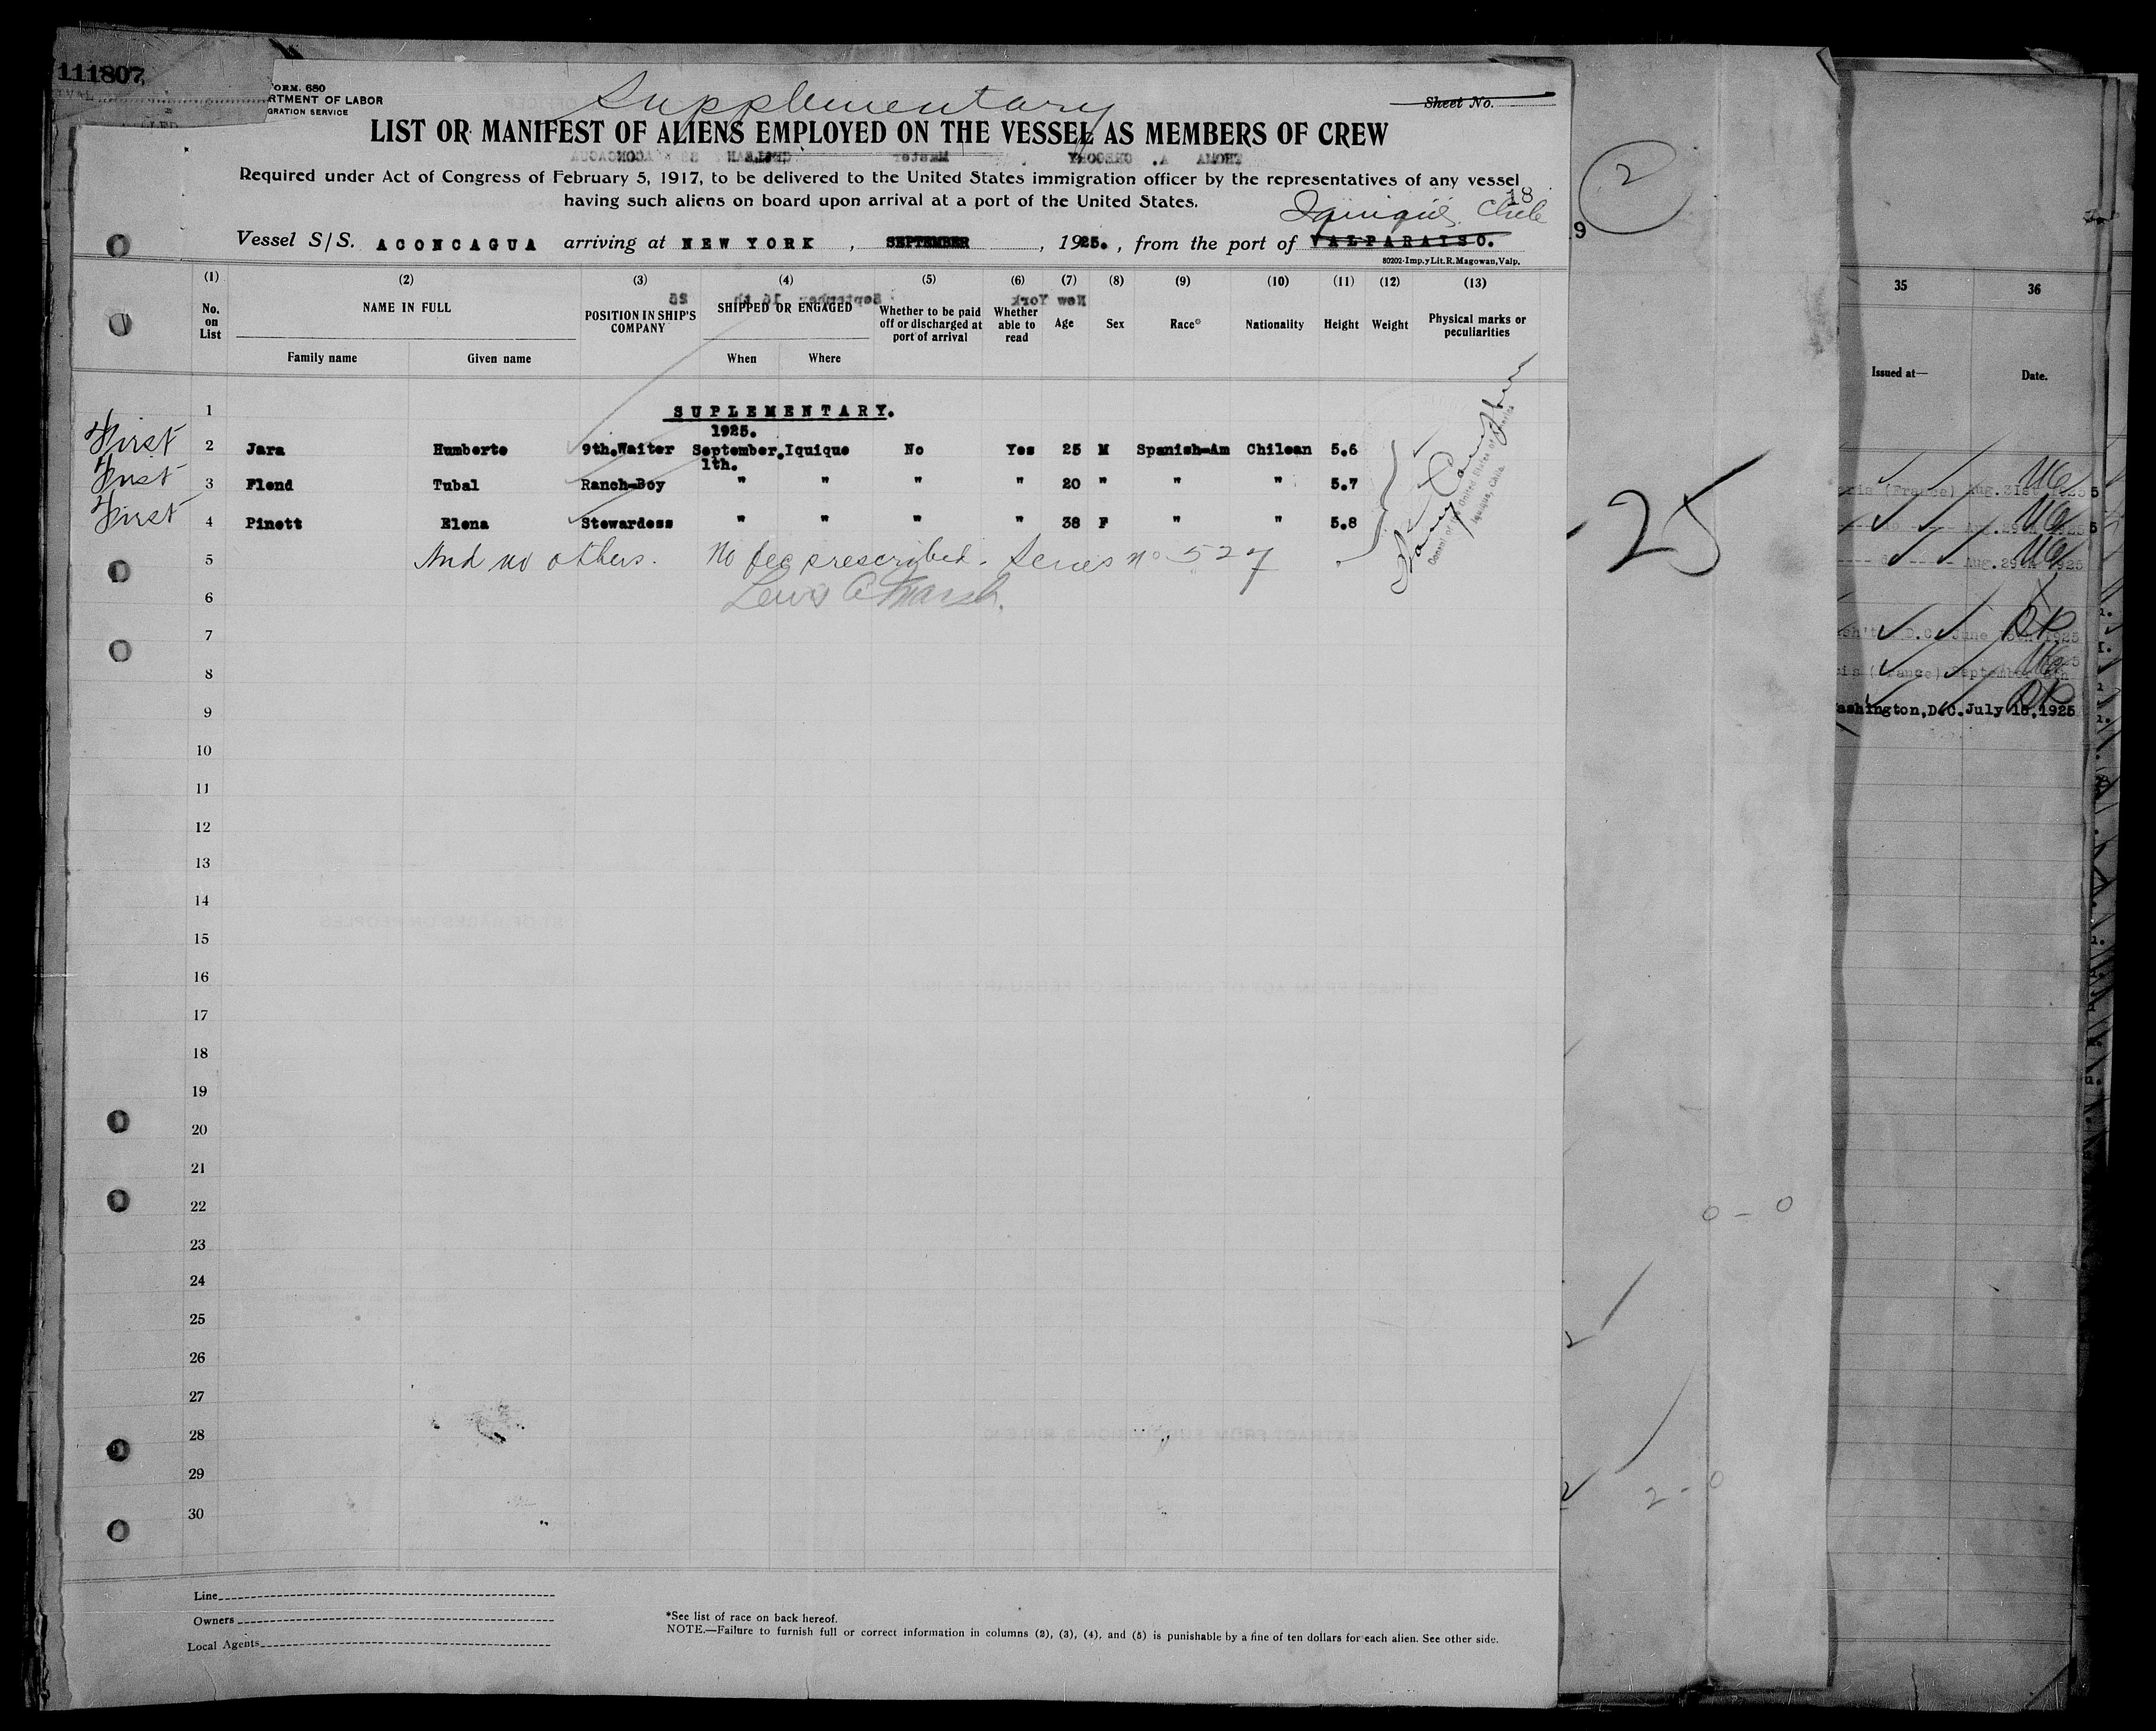 111807
FORM. 680
RTMENT OF LABOR
GRATION SERVICE
Supplementary
Sheet No.
LIST OR MANIFEST OF ALIENS EMPLOYED ON THE VESSEL AS MEMBERS OF CREW
Required under Act of Congress of February 5, 1917, to be delivered to the United States immigration officer by the representatives of any vessel
having such aliens on board upon arrival at a port of the United States.
18
Iquique, Chile
Vessel S/S. ACONCAGUA arriving at NEW YORK, SEPTEMBER, 1925., from the port of VALPARAISO.
80202-Imp.y Lit.R.Magowan, Valp.
(1) (2) (3) (4) (5) (6) (7) (8) (9) (10) (11) (12) (13)
No. on List NAME IN FULL POSITION IN SHIP'S COMPANY SHIPPED OR ENGAGED Whether to be paid off or discharged at port of arrival Whether able to read Age Sex Race* Nationality Height Weight Physical marks or peculiarities
Family name Given name When Where
1 SUPLEMENTARY.
1925.
First 2 Jara Humberto 9th.Waiter September, Iquique No Yes 25 M Spanish-Am Chilean 5.6
1th.
First 3 Flend Tubal Ranch-Boy " " " " 20 " " " 5.7
First 4 Pinett Elena Stewardess " " " " 38 F " " 5.8
5 And no others. No fee prescribed. Series no 527
6 Lewis
7
8
9
10
11
12
13
14
15
16
17
18
19
20
21
22
23
24
25
26
27
28
29
30
Line
Owners
Local Agents
*See list of race on back hereof.
NOTE.—Failure to furnish full or correct information in columns (2), (3), (4), and (5) is punishable by a fine of ten dollars for each alien. See other side.
2
9
25
0 - 0
2 - 0
35 36
Issued at— Date.
(France) Aug. 31st 1925
Aug. 29th 1925
D.C. June 1925
(France) September
ashington, D.C. July 15, 1925